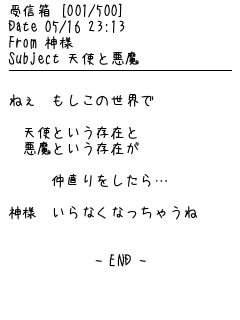 受信箱 [001/500]
Date 05/16 23:13
From 神様
Subject 天使と悪魔
ねぇ もしこの世界で
天使という存在と
悪魔という存在が
仲直りをしたら…
神様 いらなくなっちゃうね
- END -